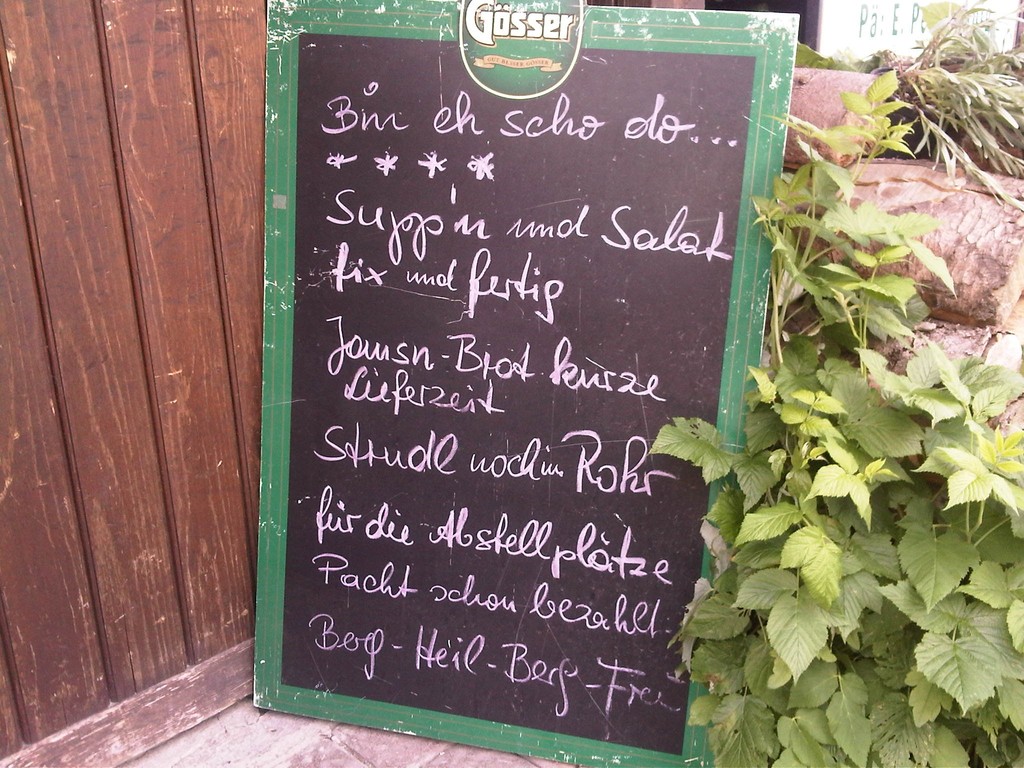 Gösser
GUT BESSER GÖSSER
Bin eh scho do...
* * * *
Supp'n und Salat
fix und fertig
Jausn-Brot kurze
Lieferzeit
Strudl noch im Rohr
für die Abstellplätze
Pacht schon bezahlt.
Berg-Heil-Berg-Frei